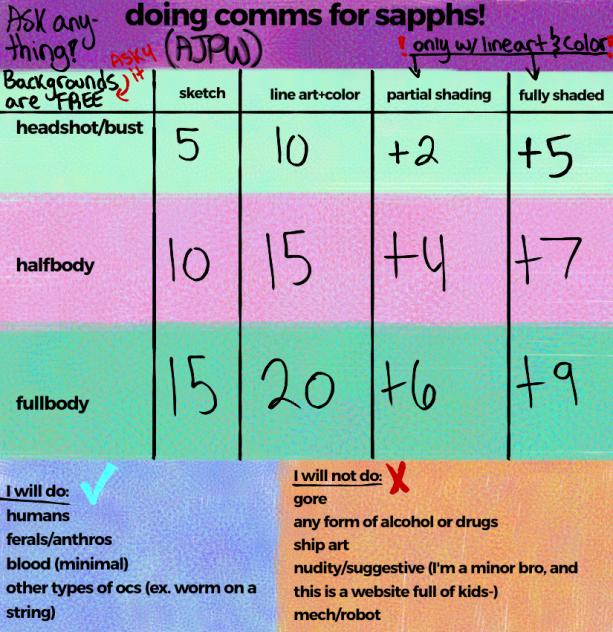 doing comms for sapphs!
Ask any-
thing!
(AJPW)
! only w/ lineart & color!
ASK 4
it
Backgrounds
are FREE
sketch
line art+color
partial shading
fully shaded
headshot/bust
5
10
+2
+5
halfbody
10
15
+4
+7
fullbody
15
20
+6
+9
I will do:
humans
ferals/anthros
blood (minimal)
other types of ocs (ex. worm on a
string)
I will not do:
gore
any form of alcohol or drugs
ship art
nudity/suggestive (I'm a minor bro, and
this is a website full of kids-)
mech/robot